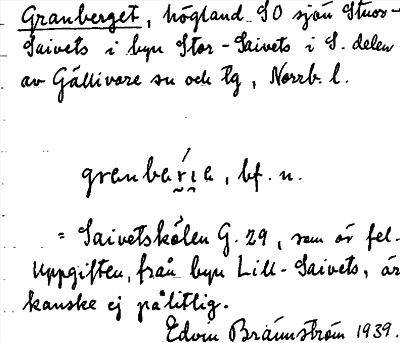 Granberget, högland SO sjön Stuor-
Saivets i byn Stor-Saivets i S. delen
av Gällivare sn och tg, Norrb. l.
granbæ̀rıe, bf. n.
= Saivetskölen G. 29, som är fel.
Uppgiften, från byn Lill-Saivets, är
kanske ej pålitlig.
Edvin Brännström 1939.